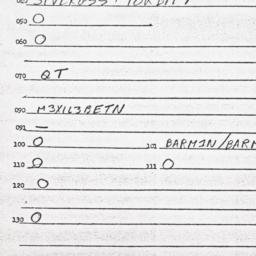 050 O
060 O
070 QT
090 M3XIL3BETN
091 —
100 O 101 BARMIN/BARM
110 O 111 O
120 O
130 O